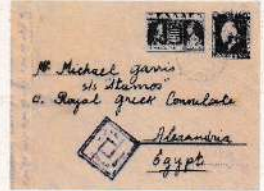 Mr Michael
s/s "Atamos"
c. Royal Greek Consulate
Alexandria
Egypt